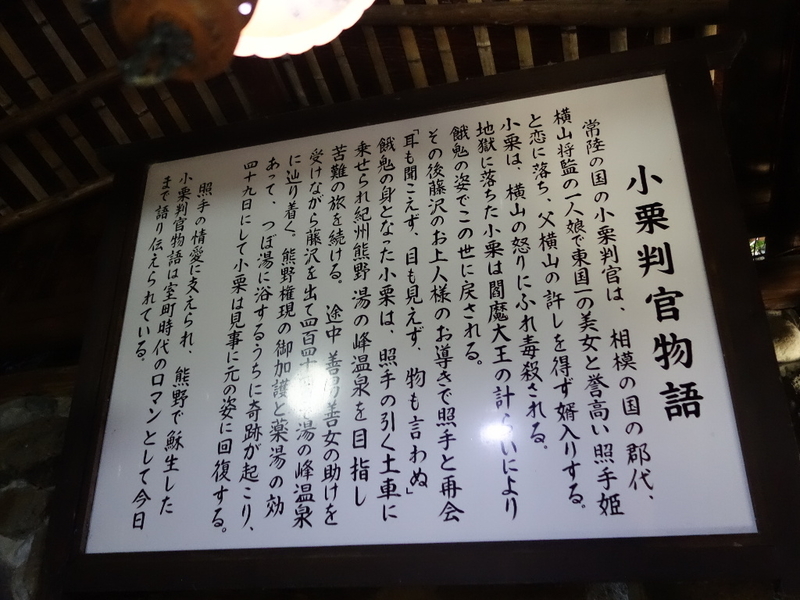 小栗判官物語
常陸の国の小栗判官は、相模の国の郡代、
横山将監の一人娘で東国一の美女と誉高い照手姫
と恋に落ち、父横山の許しを得ず婿入りする。
小栗は、横山の怒りにふれ毒殺される。
地獄に落ちた小栗は閻魔大王の計らいにより
餓鬼の姿でこの世に戻される。
その後藤沢のお上人様のお導きで照手と再会
「耳も聞こえず、目も見えず、物も言わぬ」
餓鬼の身となった小栗は、照手の引く土車に
乗せられ紀州熊野 湯の峰温泉を目指し
苦難の旅を続ける。 途中 善男善女の助けを
受けながら藤沢を出て四百四十 湯の峰温泉
に辿り着く。熊野権現の御加護と薬湯の効
あって、つぼ湯に浴するうちに奇跡が起こり、
四十九日にして小栗は見事に元の姿に回復する。
照手の情愛に支えられ、熊野で穌生した
小栗判官物語は室町時代のロマンとして今日
まで語り伝えられている。